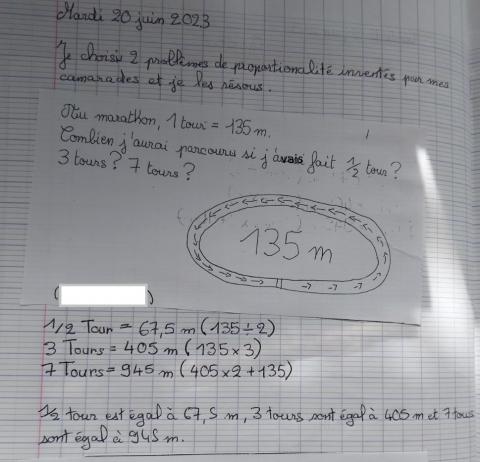 Mardi 20 juin 2023
Je choisis 2 problèmes de proportionalité inventés par mes
camarades et je les résous.
Au marathon, 1 tour = 135 m.
Combien j'aurai parcouru si j'avais fait 1/2 tour ?
3 tours ? 7 tours ?
135 m
( )
1/2 Tour = 67,5 m (135÷2)
3 Tours = 405 m (135×3)
7 Tours = 945 m (405×2+135)
1/2 tour est égal à 67,5 m, 3 tours sont égal à 405 m et 7 tours
sont égal à 945 m.